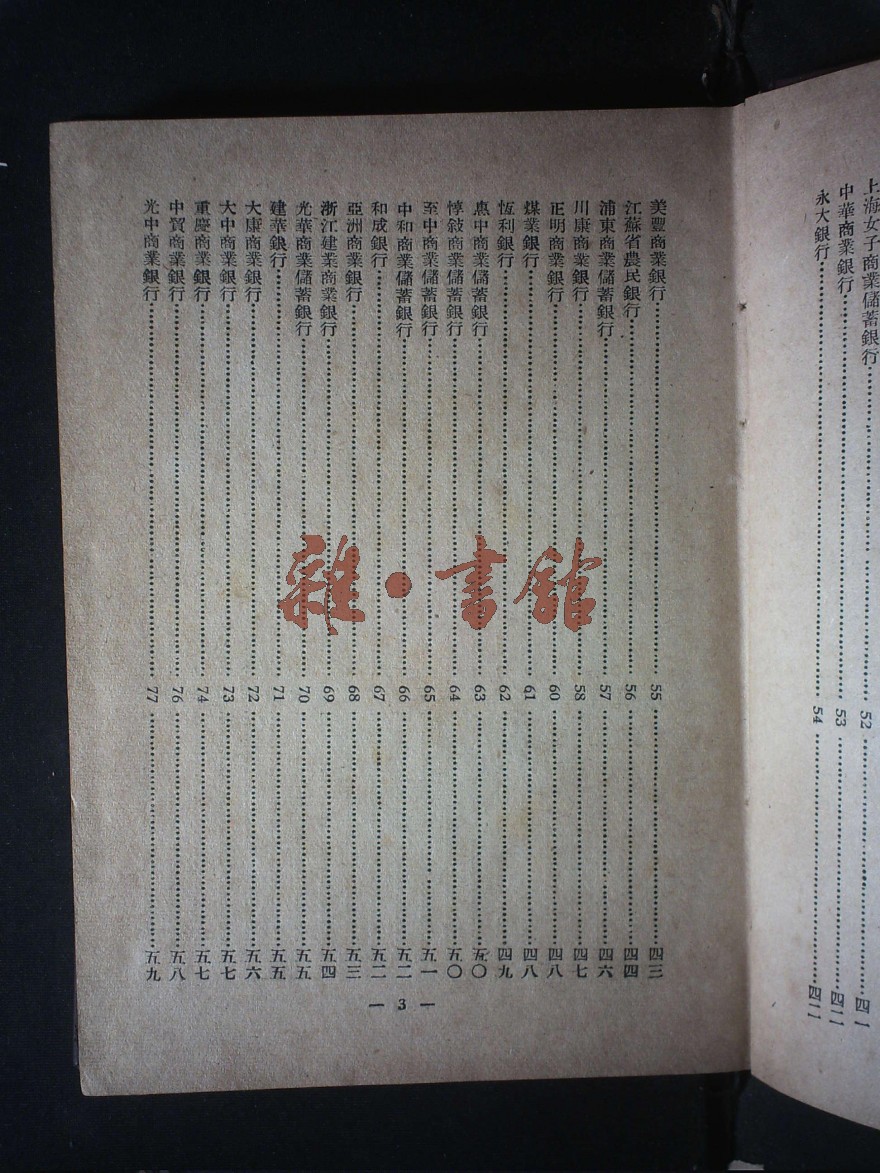 上海女子商業儲蓄銀行……52……四一
中華商業銀行……53……四二
永大銀行……54……四二
美豐商業銀行……55……四三
江蘇省農民銀行……56……四四
浦東商業儲蓄銀行……57……四六
川康商業銀行……58……四七
正明商業銀行……60……四八
煤業銀行……61……四八
恆利銀行……62……四九
惠中商業儲蓄銀行……63……五〇
惇敍商業儲蓄銀行……64……五〇
至中商業儲蓄銀行……65……五一
中和商業儲蓄銀行……66……五二
和成銀行……67……五二
亞洲商業銀行……68……五三
浙江建業商業銀行……69……五四
光華商業儲蓄銀行……70……五五
建華銀行……71……五五
大康商業銀行……72……五六
大中商業銀行……73……五七
重慶商業銀行……74……五七
中貿商業銀行……76……五八
光中商業銀行……77……五九
— 3 —
雜·書館